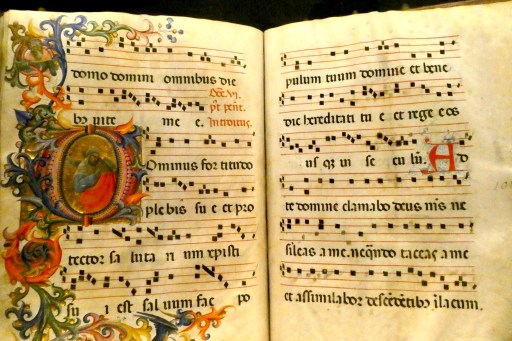 domo domini omnibus die
bus vite me e.
Dñc. VI.
pꝰt pent.
Introitus.
Ominus fortitudo
plebis su e et pro
tector sa luta ri um xpisti
su i est sal uum fac po
pulum tuum domine et bene
dic hereditati tu e et rege eos
us qꝫ in se cu lũ. Ad
te domine clamabo deus mẽs ne
sileas a me. neqñdo taceas a me
et assimilabor descẽdẽtibꝰ ĩ lacum.